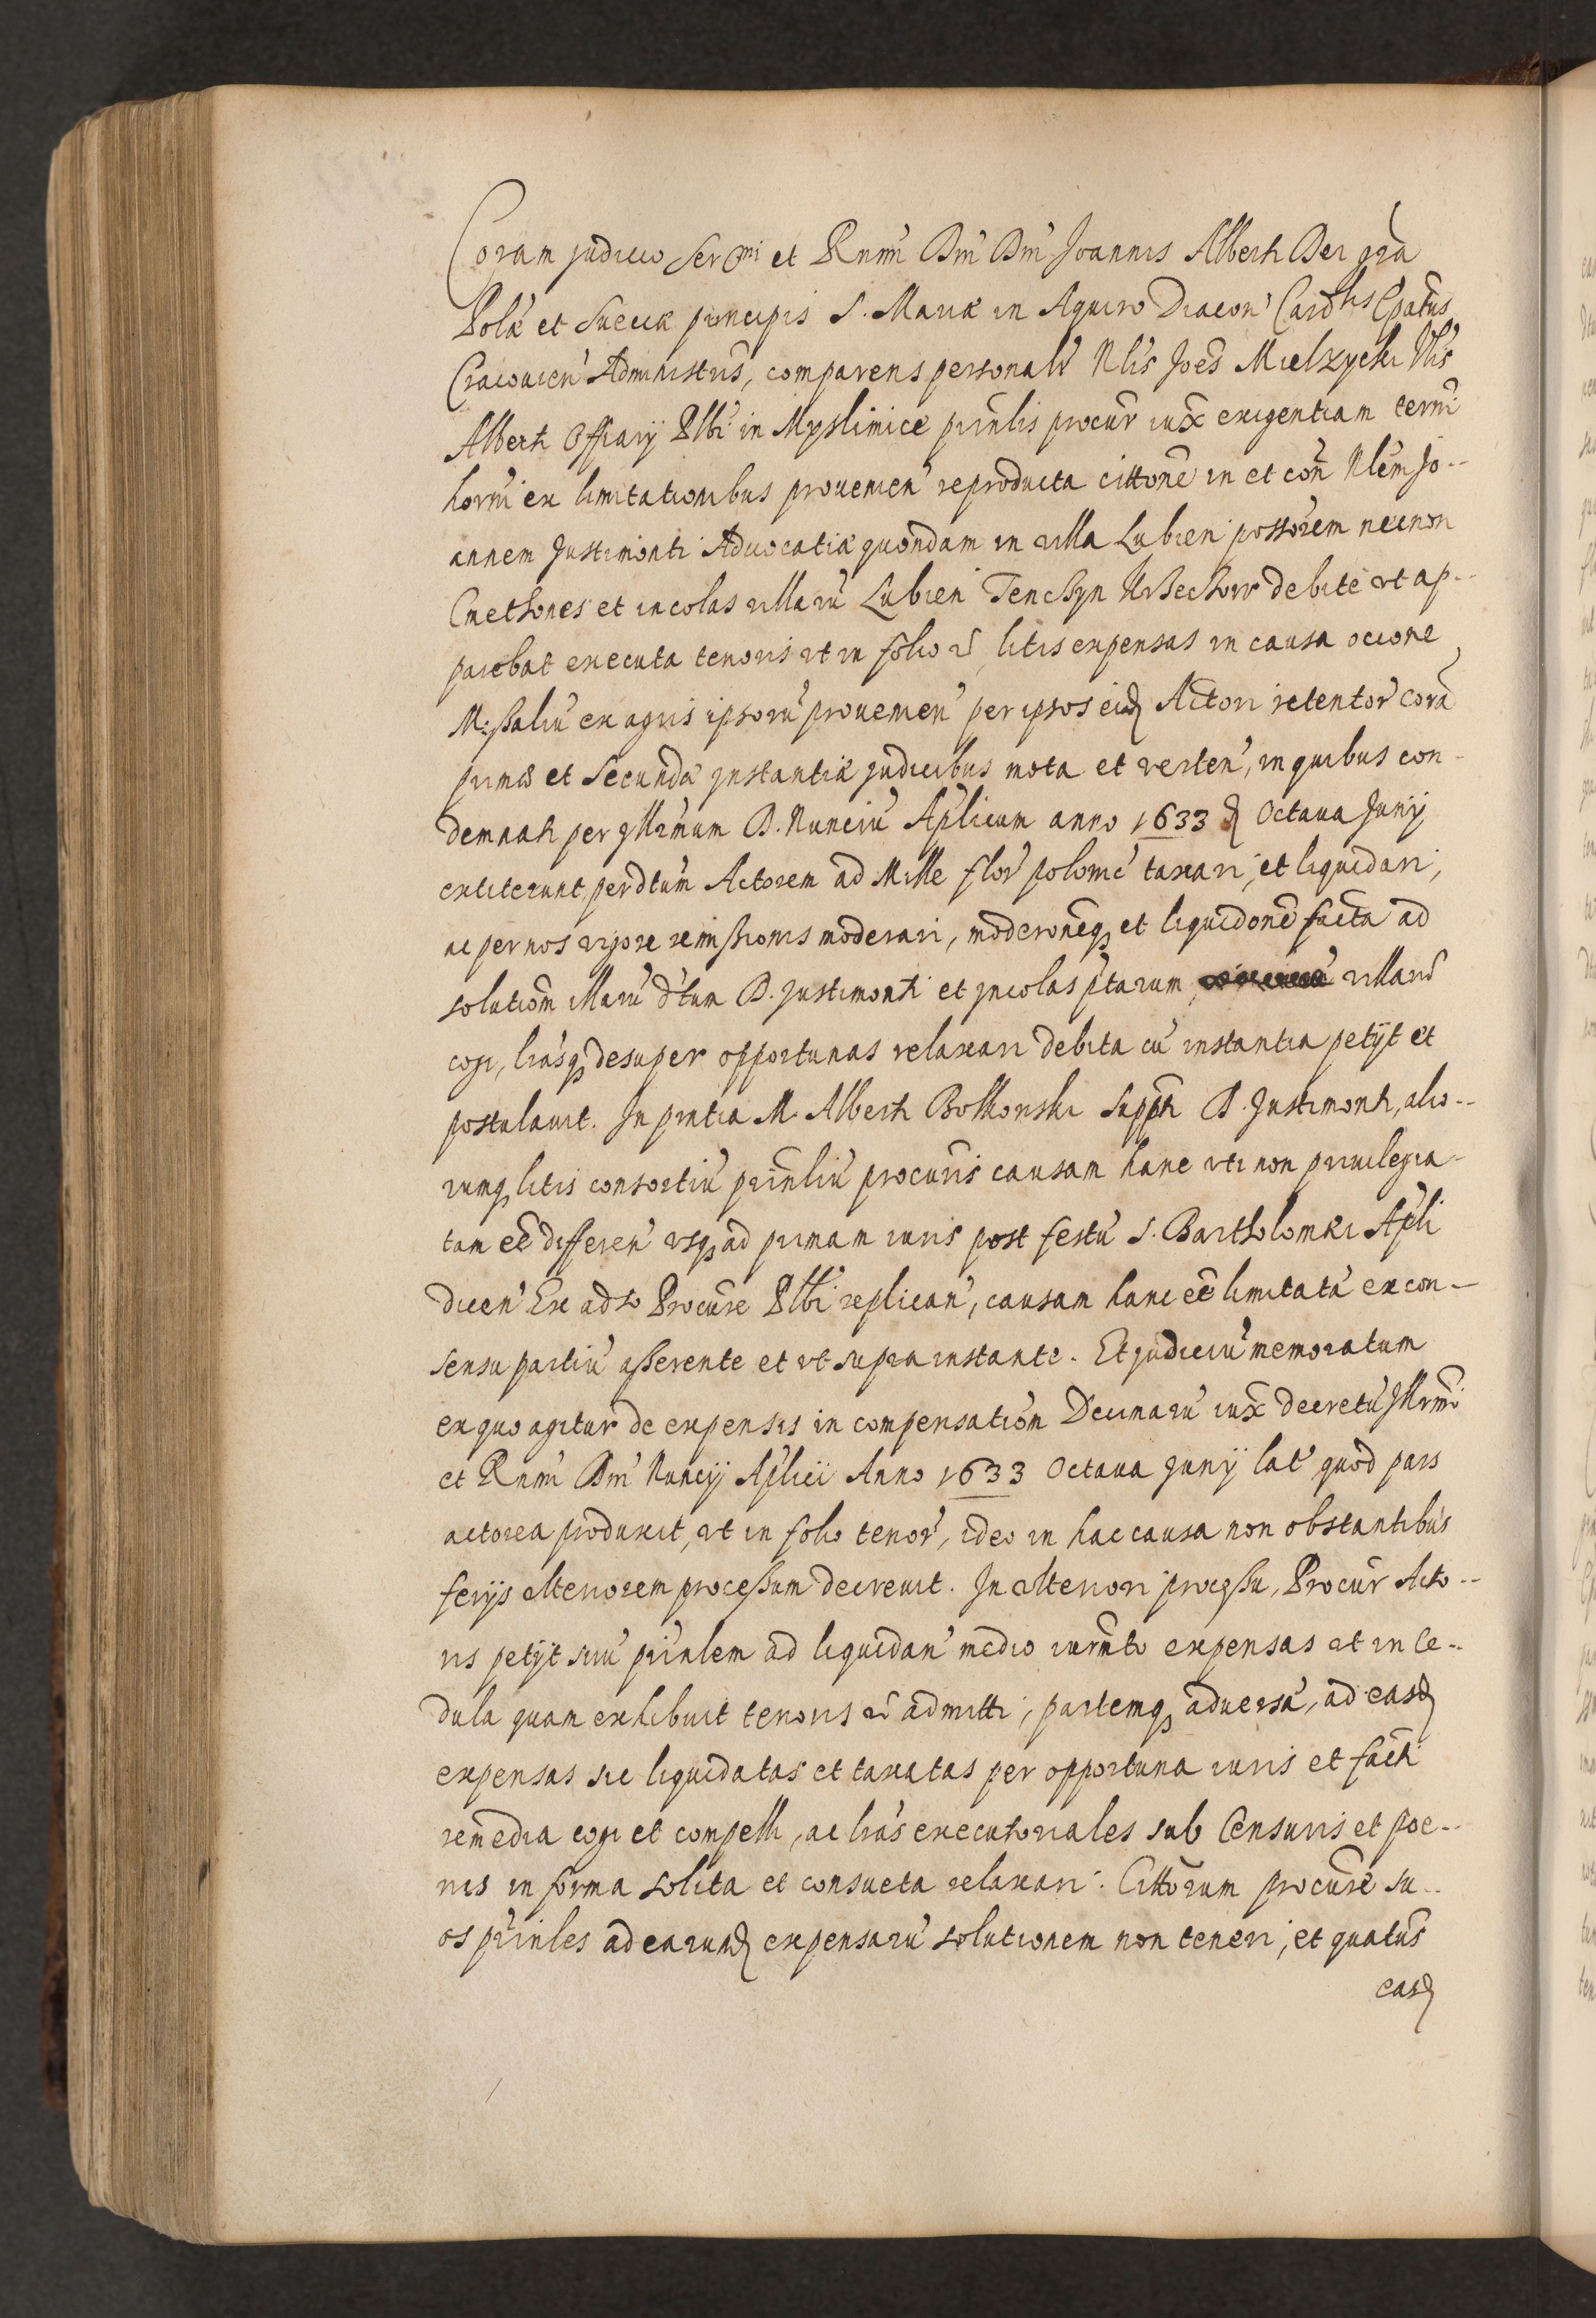 Coram judicio Sermi et Rnmi Dni Dni Joannis Alberti Dei gra
Polae et Sueciae principis S. Mariae in Aquiro Diacon Cardlis Epatus
Cracouien Administris, comparens personalr Nlis Joes Mielzycki Vlis
Alberti Offiarÿ Plbi in Myslimice prinlis procur iux exigentiam termi
horni ex limitationibus prouenien reproducta cittone in et con Nlem Jo--
annem Justimonti Aduocatiae quondam in villa Lubien possorem necnon
Cmethones et incolas villaru Lubien Tenczyn debite vt ap--
parebat executa tenoris vt in folio litis expensas in causa occione
Missaliu ex agris ipsoru prouenien per ipsos eid Actori retentor cora
primae et Secundae Instantiae judicibus mota et verten, in quibus con-
demnati per Illrmum D. Nunciu Aplicum anno 1633 d Octaua Junÿ
extiterunt per dtum Actorem ad Mille flor polonic taxari, et liquidari,
ac per nos vigore remissionis moderari, moderoneq et liquidone facta ad
solutiom illaru dtum D. Justimonti et Incolas ptarum villaru
cogi, lirasq desuper opportunas relaxari debita cu instantia petÿt et
postulauit. In pntia M. Alberti Bolkonski Supph D. Justimonti, alio--
rumq litis consortiu prinliu procuris causam hanc vti non priuilegia-
tam ee differen vsq ad primam iuris post festu S. Bartholomaei Apli
dicen Ex adso Procure Plbi replican, causam hanc ee limitata ex con-
sensu partiu asserente et vt supra instante. Et judiciu memoratum
ex quo agitur de expensis in compensatiom Decimaru iux decretu Illrmi
et Rnmi Dni Nuncÿ Aplici Anno 1633 Octaua Junÿ lat quod pars
actorea produxit, vt in folio tenor, ideo in hac causa non obstantibus
ferÿs vlteriorem processum decreuit. In vlteriori processu, Procur Acto--
ris petÿt suu prinlem ad liquidan medio iurmto expensas vt in Ce--
dula quam exhibuit tenoris admitti, partemq aduersa, ad easd
expensas sic liquidatas et taxatas per opportuna iuris et facti
remedia cogi et compelli, ac liras executoriales sub Censuris et poe--
nis in forma solita et consueta relaxari. Cittorum procure su--
os prinles ad earund expensaru solutionem non teneri, et quatus
easd